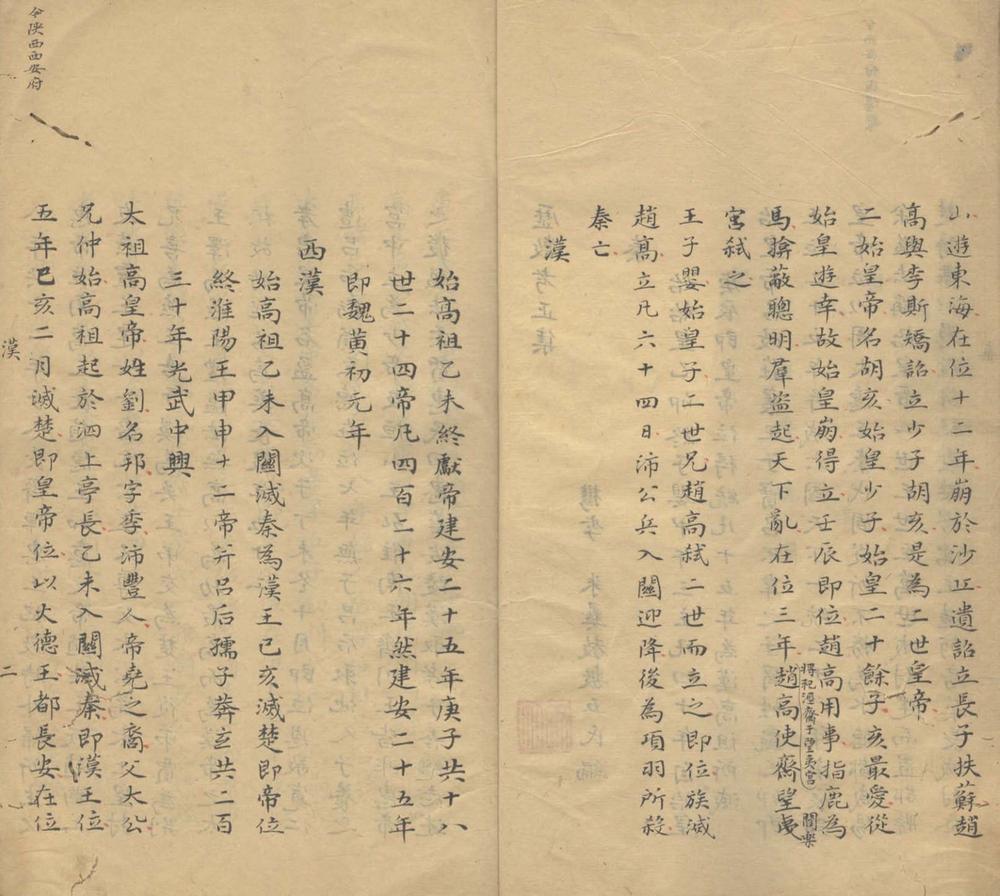 山遊東海在位十二年崩於沙丘遺詔立長子扶蘇趙
高與李斯矯詔立少子胡亥是為二世皇帝
二世皇帝名胡亥始皇少子始皇二十餘子亥最愛從
始皇遊幸故始皇崩得立壬辰即位趙高用事指鹿為
馬擁蔽聰明羣盜起天下亂在位三年趙高使齋望夷
將祀涇齋于望夷宮
閻樂
宮弒之
王子嬰始皇子二世兄趙高弒二世而立之即位族滅
趙高立凡六十四日沛公兵入關迎降後為項羽所殺
秦亡
漢
始高祖乙未終獻帝建安二十五年庚子共十八
世二十四帝凡四百二十六年然建安二十五年
即魏黃初元年
西漢
始高祖乙未入關滅秦為漢王己亥滅楚即帝位
終淮陽王甲申十二帝并呂后孺子莽立共二百
三十年光武中興
太祖高皇帝姓劉名邦字季沛豐人帝堯之裔父太公
兄仲始高祖起於泗上亭長乙未入關滅秦即漢王位
五年己亥二月滅楚即皇帝位以火德王都長安在位
今陝西西安府
漢
二